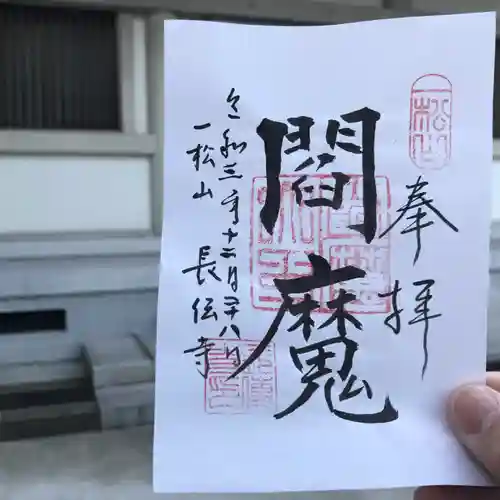 一松山
奉拝
閻魔
令和三年十二月二十八日
一松山 長伝寺